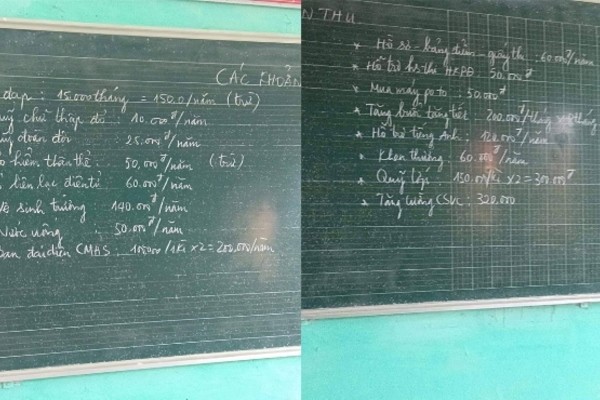 CÁC KHOẢN
đạp : 15.000/tháng = 150.0/năm (trừ)
quỹ chữ thập đỏ : 10.000đ/năm
quỹ đoàn đội : 25.000đ/năm
hiểm thân thể : 50.000đ/năm (trừ)
liên lạc điện tử : 60.000đ/năm
Vệ sinh trường : 140.000đ/năm
Nước uống : 50.000đ/năm
Ban đại diện CMHS : 100.000/1kì x2 = 200.000/năm
THU
* Hồ sơ - bảng điểm - giấy thi : 60.000đ/năm
* Hỗ trợ hs thi HKPĐ : 50.000đ
* Mua máy pô tô : 50.000đ
* Tăng buổi từng tiết : 200.000đ/tháng tháng
* Hỗ trợ tiếng Anh : 120.000đ/năm
* Khen thưởng : 60.000đ/năm
* Quỹ lớp : 150.000/kì x 2 = 300.000đ
* Tăng cường CSVC : 320.000